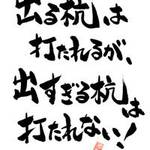 出る杭は
打たれるが、
出すぎる杭は
打たれない!